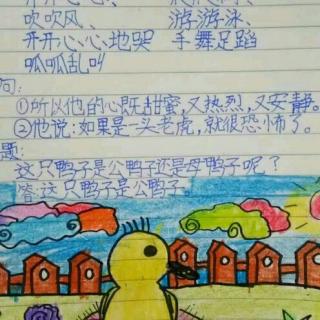 开开心心、
吹吹风、 游游泳、
开开心心地哭 手舞足蹈
呱呱乱叫
句:
①所以他的心既甜蜜,又热烈,又安静。
②他说:如果是一头老虎,就很恐怖了。
题:
这只鸭子是公鸭子还是母鸭子呢?
答:这只鸭子是公鸭子。